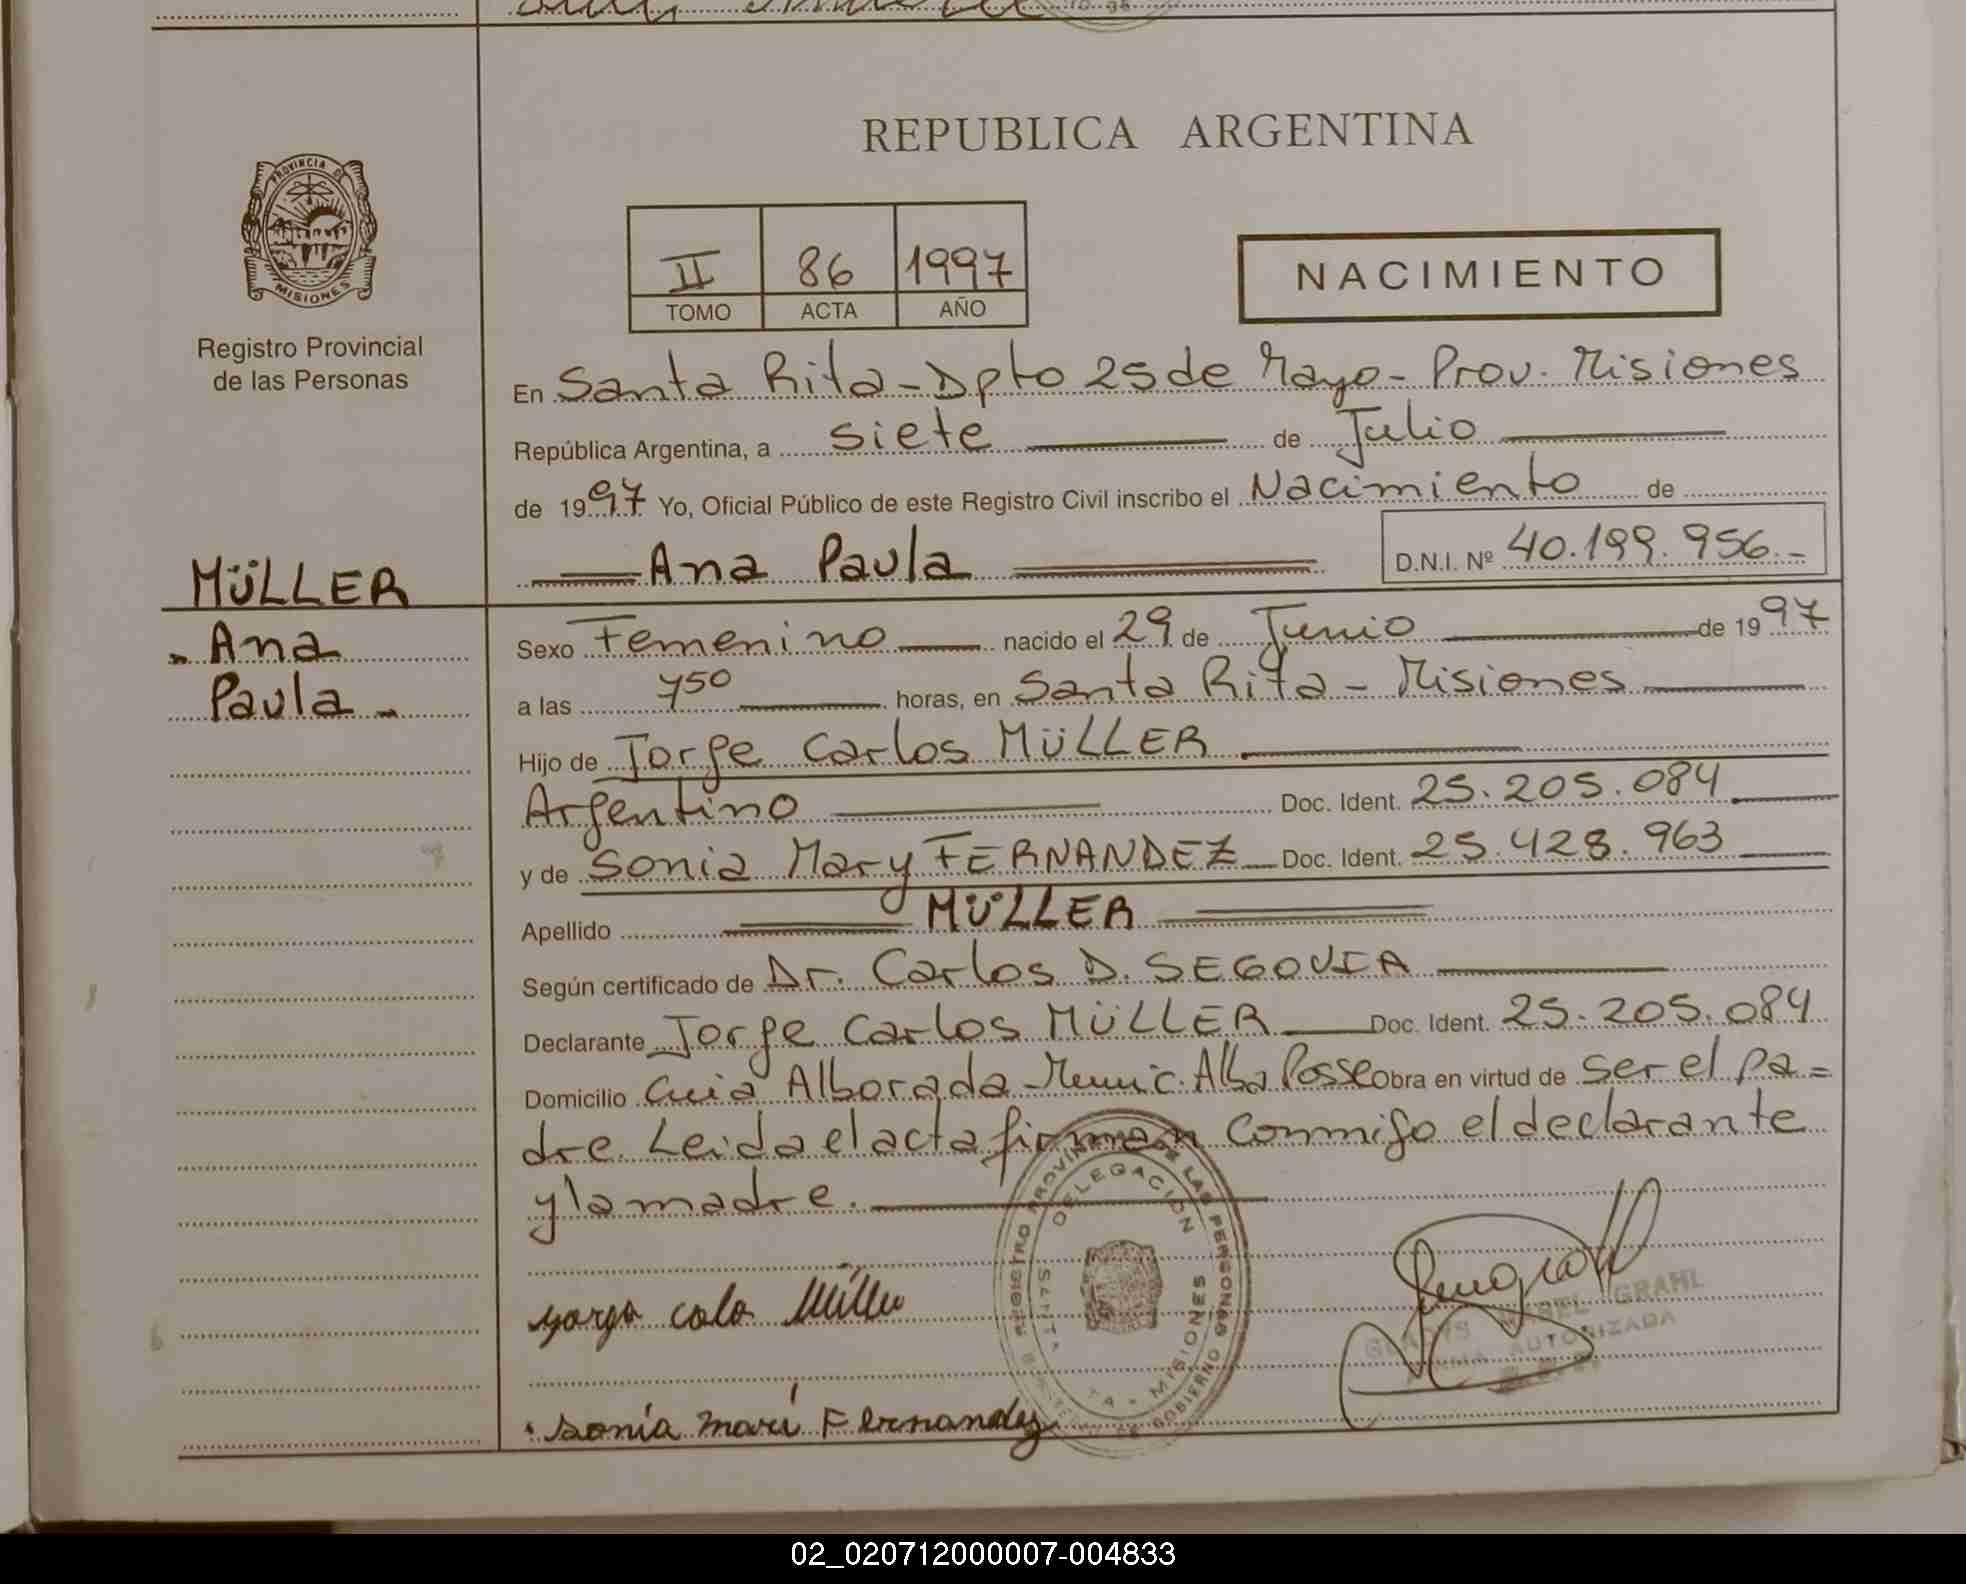 REPUBLICA ARGENTINA
PROVINCIA DE
MISIONES
Registro Provincial
de las Personas
II 86 1997
TOMO ACTA AÑO
NACIMIENTO
En Santa Rita - Dpto 25 de Mayo - Prov. Misiones
República Argentina, a siete de Julio
de 1997 Yo, Oficial Público de este Registro Civil inscribo el Nacimiento de
Ana Paula D.N.I. Nº 40.199.956.-
MÜLLER
Ana
Paula -
Sexo Femenino nacido el 29 de Junio de 1997
a las 750 horas, en Santa Rita - Misiones
Hijo de Jorge Carlos MÜLLER
Argentino Doc. Ident. 25.205.084
y de Sonia Mary FERNANDEZ Doc. Ident. 25.428.963
Apellido MÜLLER
Según certificado de Dr. Carlos D. SEGOVIA
Declarante Jorge Carlos MÜLLER Doc. Ident. 25.205.084
Domicilio Alborada - Munic. Alba Posse Obra en virtud de ser el pa=
dre. Leida el acta firman conmigo el declarante
y la madre.
REGISTRO PROVINCIAL DE LAS PERSONAS
DELEGACION
SANTA RITA - MISIONES
GOBIERNO
GLADYS MABEL GRAHL
FIRMA AUTORIZADA
yorge calo Müller
Sonia mari Fernandez
02_020712000007-004833